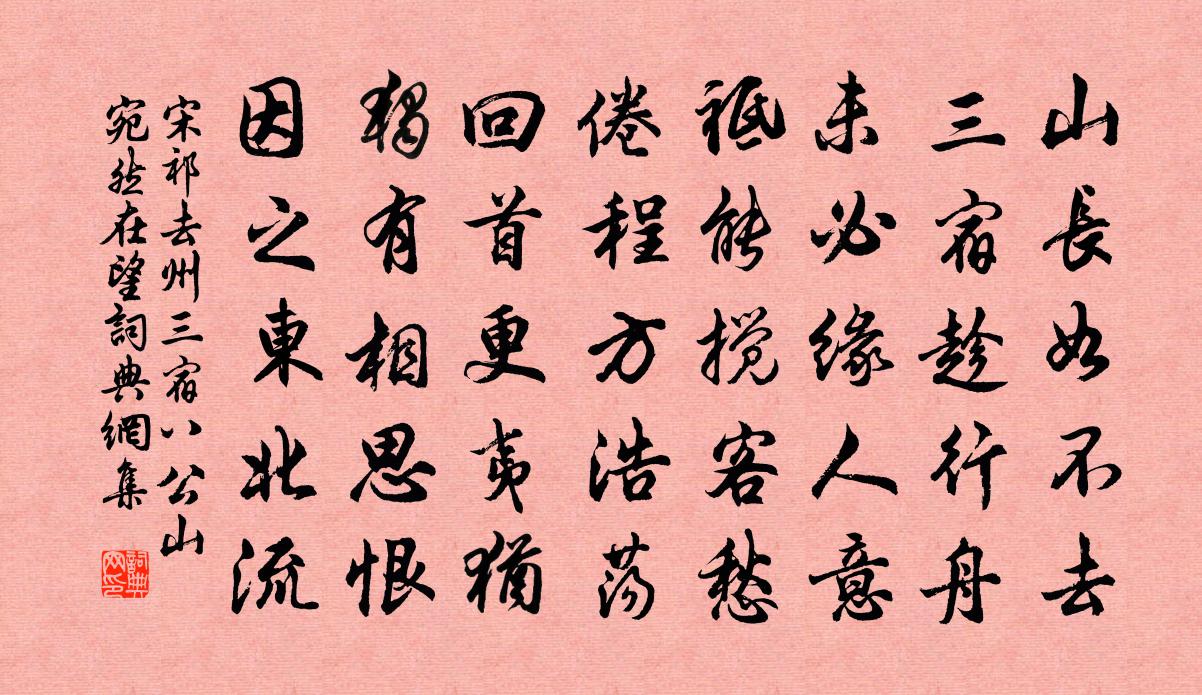 山長如不去
三宿趁行舟
未必緣人意
祗能攪客愁
倦程方浩蕩
回首更夷猶
獨有相思恨
因之東北流
宋祁去州三宿八公山
宛然在望詞典網集
詞典网印